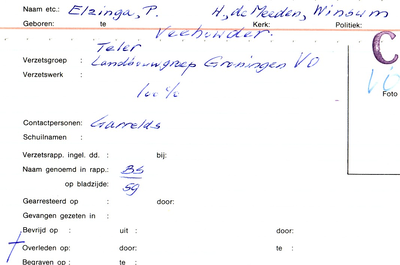 Naam etc.: Elzinga, P. H, de Meeden, Winsum
Geboren: te Kerk: Politiek:
Veehouder.
Teler
Verzetsgroep : Landbouwgroep Groningen VO
Verzetswerk :
100%
C
Foto
Contactpersonen: Garrelds
Schuilnamen :
Verzetsrapp. ingel. dd. : bij:
Naam genoemd in rapp.: BS
op bladzijde: 59
Gearresteerd op : door:
Gevangen gezeten in :
Bevrijd op : uit : door:
Overleden op: door: te :
Begraven op : te :